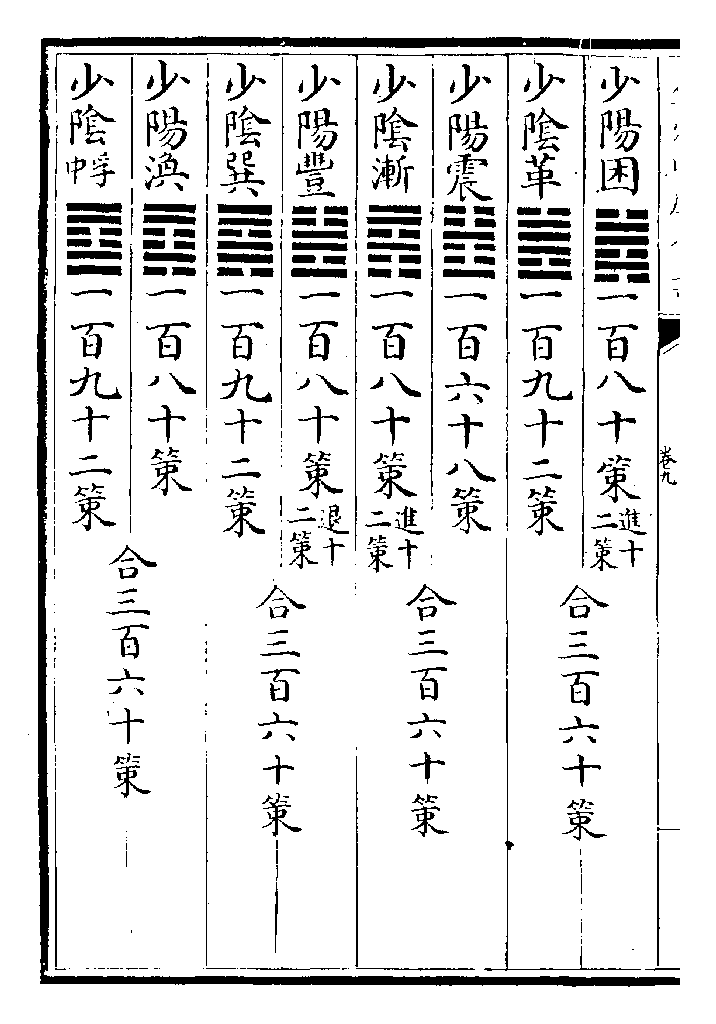 卷九
少陽困一百八十策進十二策
少陰革一百九十二策
合三百六十策
少陽震一百六十八策
少陰漸一百八十策進十二策
合三百六十策
少陽豐一百八十策退十二策
少陰巽一百九十二策
合三百六十策
少陽渙一百八十策
少陰中孚一百九十二策
合三百六十策